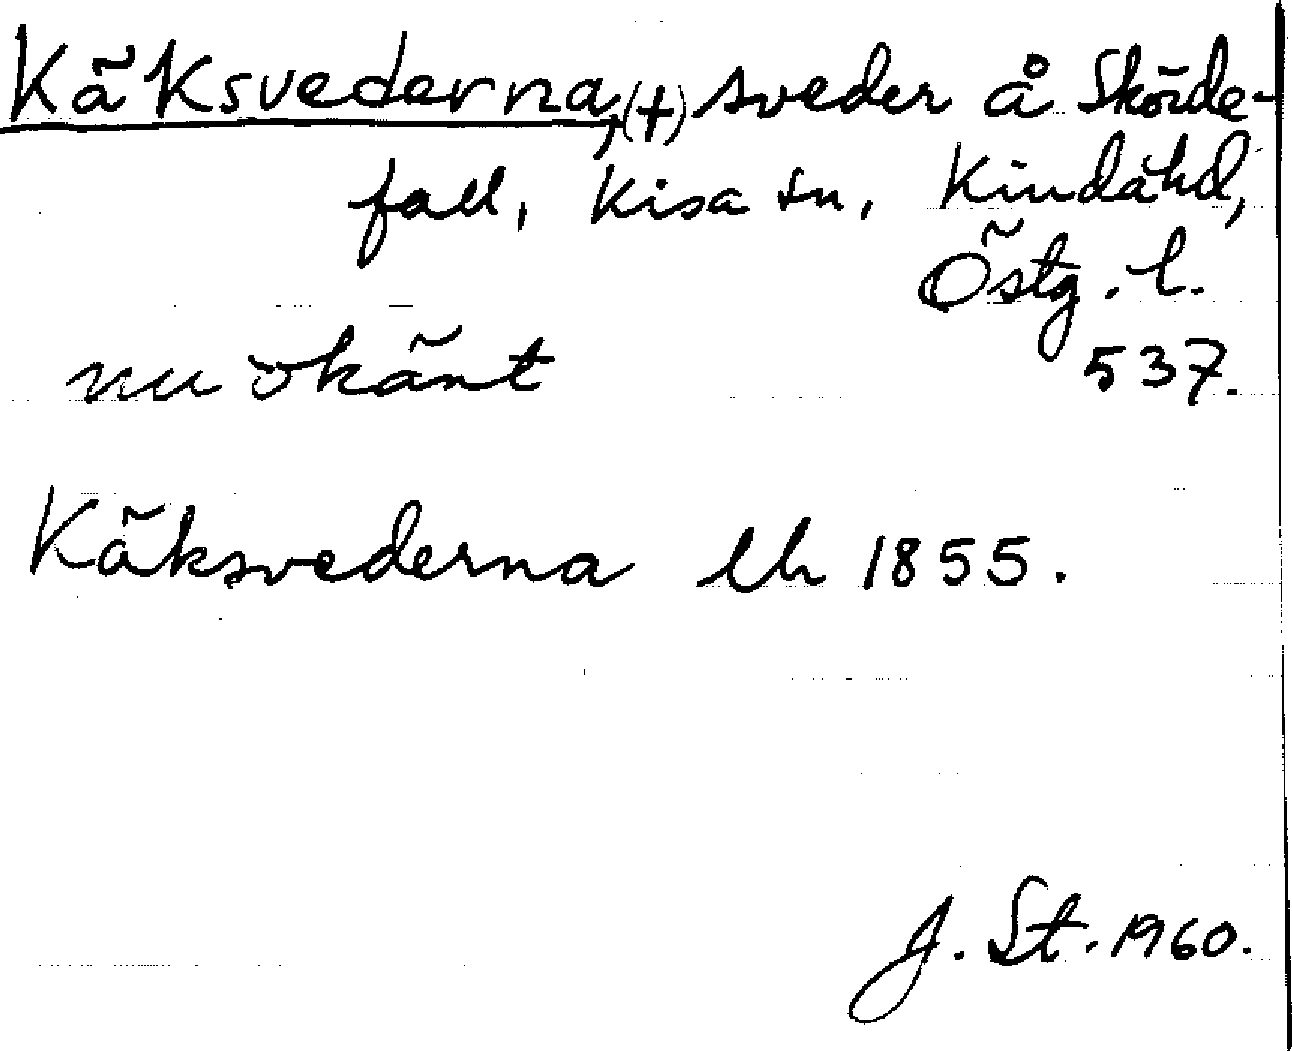 Käksvederna, (+) sveder å Skörde-
fall, Kisa sn, Kinda hd,
Östg. l.
nu okänt 537.
Käksvederna lh 1855.
J. St. 1960.